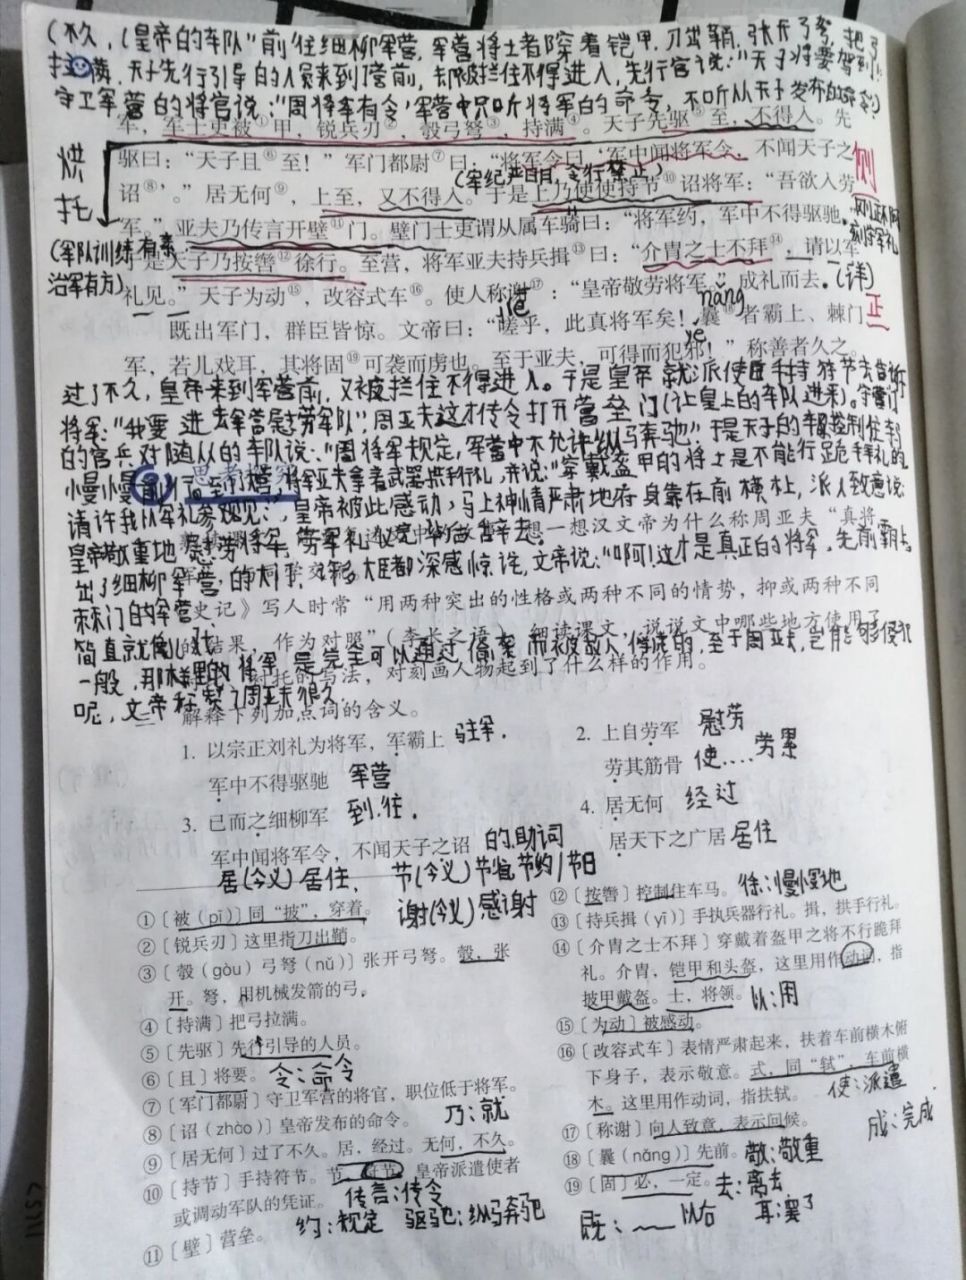 (不久,(皇帝的车队)前往细柳军营,军营将士都穿着铠甲,刀出鞘,张开弓弩,把弓
拉满,天子先行引导的人员来到了营前,却被拦住不得进入,先行官说:"天子将要驾到!"
守卫军营的将官说:"周将军有令'军营中只听将军的命令,不听从天子发布的命令'")
军,军士吏被①甲,锐兵刃②,彀弓弩③,持满④。天子先驱⑤至,不得入。先
烘托
驱曰:“天子且⑥至!”军门都尉⑦曰:“将军令曰‘军中闻将军令,不闻天子之
(军纪严明,令行禁止)
侧
诏⑧’。”居无何⑨,上至,又不得入。于是上乃使使持节⑩诏将军:“吾欲入劳
军。”亚夫乃传言开壁⑪门。壁门士吏谓从属车骑曰:“将军约,军中不得驱驰。”
(军队训练有素,
治军有方)
于是天子乃按辔⑫徐行。至营,将军亚夫持兵揖⑬曰:“介胄之士不拜⑭,请以军
礼见。”天子为动⑮,改容式车⑯。使人称谢⑰:“皇帝敬劳将军。”成礼而去。(详)
nǎng
正
既出军门,群臣皆惊。文帝曰:“嗟乎,此真将军矣!曩⑱者霸上、棘门
军,若儿戏耳,其将固⑲可袭而虏也。至于亚夫,可得而犯邪!”称善者久之。
yé
过了不久,皇帝来到军营前,又被拦住不得进入。于是皇帝就派使臣手持符节去告诉
将军:"我要进去军营慰劳军队",周亚夫这才传令打开营垒门(让皇上的车队进来)。守营门
的官兵对随从的车队说:"周将军规定,军营中不允许纵马奔驰",于是天子的车队控制住车马
思考探究
慢慢前行。到了大营,将军亚夫拿着武器拱手行礼,并说:"穿戴盔甲的将士是不能行跪拜礼的,
请许我以军礼参见",皇帝被此感动,马上神情严肃地俯身靠在前横木上,派人致意说:
皇帝敬重地慰劳将军,劳军礼仪完毕后告辞去。
想一想汉文帝为什么称周亚夫“真将
出了细柳军营的大门,许多大臣都深感惊诧,文帝说:"啊!这才是真正的将军,先前霸上、
棘门的军营
史记》写人时常“用两种突出的性格或两种不同的情势,抑或两种不同
的结果,作为对照”(李长之语)。细读课文,说说文中哪些地方使用了
简直就像儿戏
一般,那里的将军是完全可以通过偷袭而被敌人俘虏的,至于周亚夫,岂能够侵犯
衬托的写法,对刻画人物起到了什么样的作用。
呢,文帝称赞了周亚夫很久
三 解释下列加点词的含义。
1. 以宗正刘礼为将军,军霸上 驻军.
军中不得驱驰 军营
2. 上自劳军 慰劳
劳其筋骨 使....劳累
3. 已而之细柳军 到.往.
军中闻将军令,不闻天子之诏 的,助词
4. 居无何 经过
居天下之广居 居住
居(今义)居住. 节(今义)节省节约/节日
谢(今义)感谢
①〔被(pī)〕同“披”,穿着。
②〔锐兵刃〕这里指刀出鞘。
③〔彀(gòu)弓弩(nǔ)〕张开弓弩。彀,张
开。弩,用机械发箭的弓。
④〔持满〕把弓拉满。
⑤〔先驱〕先行引导的人员。
⑥〔且〕将要。 令:命令
⑦〔军门都尉〕守卫军营的将官,职位低于将军。
⑧〔诏(zhào)〕皇帝发布的命令。 乃:就
⑨〔居无何〕过了不久。居,经过。无何,不久。
⑩〔持节〕手持符节。节,符节,皇帝派遣使者
或调动军队的凭证。 传言:传令
⑪〔壁〕营垒。 约:规定 驱驰:纵马奔驰
⑫〔按辔〕控制住车马。 徐:慢慢地
⑬〔持兵揖(yī)〕手执兵器行礼。揖,拱手行礼。
⑭〔介胄之士不拜〕穿戴着盔甲之将不行跪拜
礼。介胄,铠甲和头盔,这里用作动词,指
披甲戴盔。士,将领。 以:用
⑮〔为动〕被感动。
⑯〔改容式车〕表情严肃起来,扶着车前横木俯
下身子,表示敬意。式,同“轼”,车前横
木。这里用作动词,指扶轼。 使:派遣
⑰〔称谢〕向人致意,表示问候。 成:完成
⑱〔曩(nǎng)〕先前。 敬:敬重
⑲〔固〕必,一定。 去:离去
既:﹏以后 耳:罢了